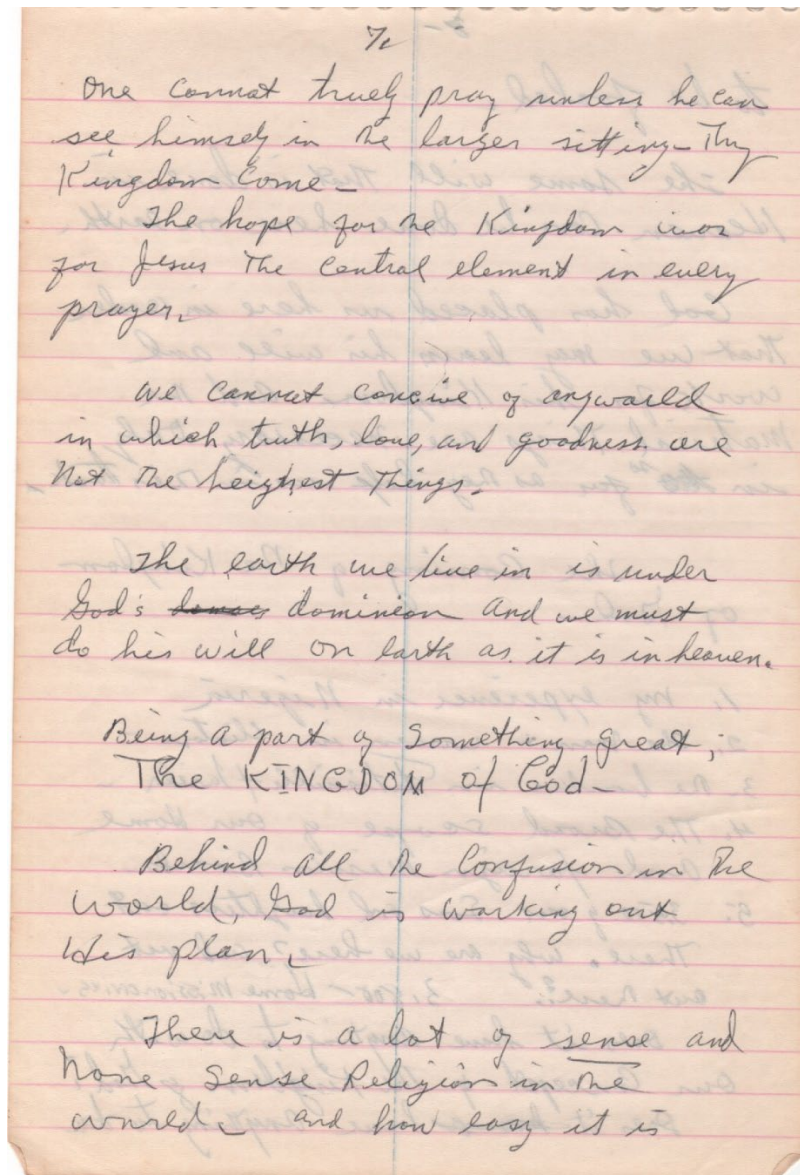 7.
One cannot truely pray unless he can
see himself in the larger sitting - Thy
Kingdom Come -
The hope for the Kingdom was
for Jesus The Central element in every
prayer.
We cannot concive of any world
in which truth, love, and goodness are
Not The heighest Things.
The earth we live in is under
God's dominion and we must
do his will on earth as it is in heaven.
Being a part of Something Great;
The KINGDOM of God -
Behind all the Confusion in The
world, God is working out
His plan.
There is a lot of sense and
None Sense Religion in The
world. and how easy it is